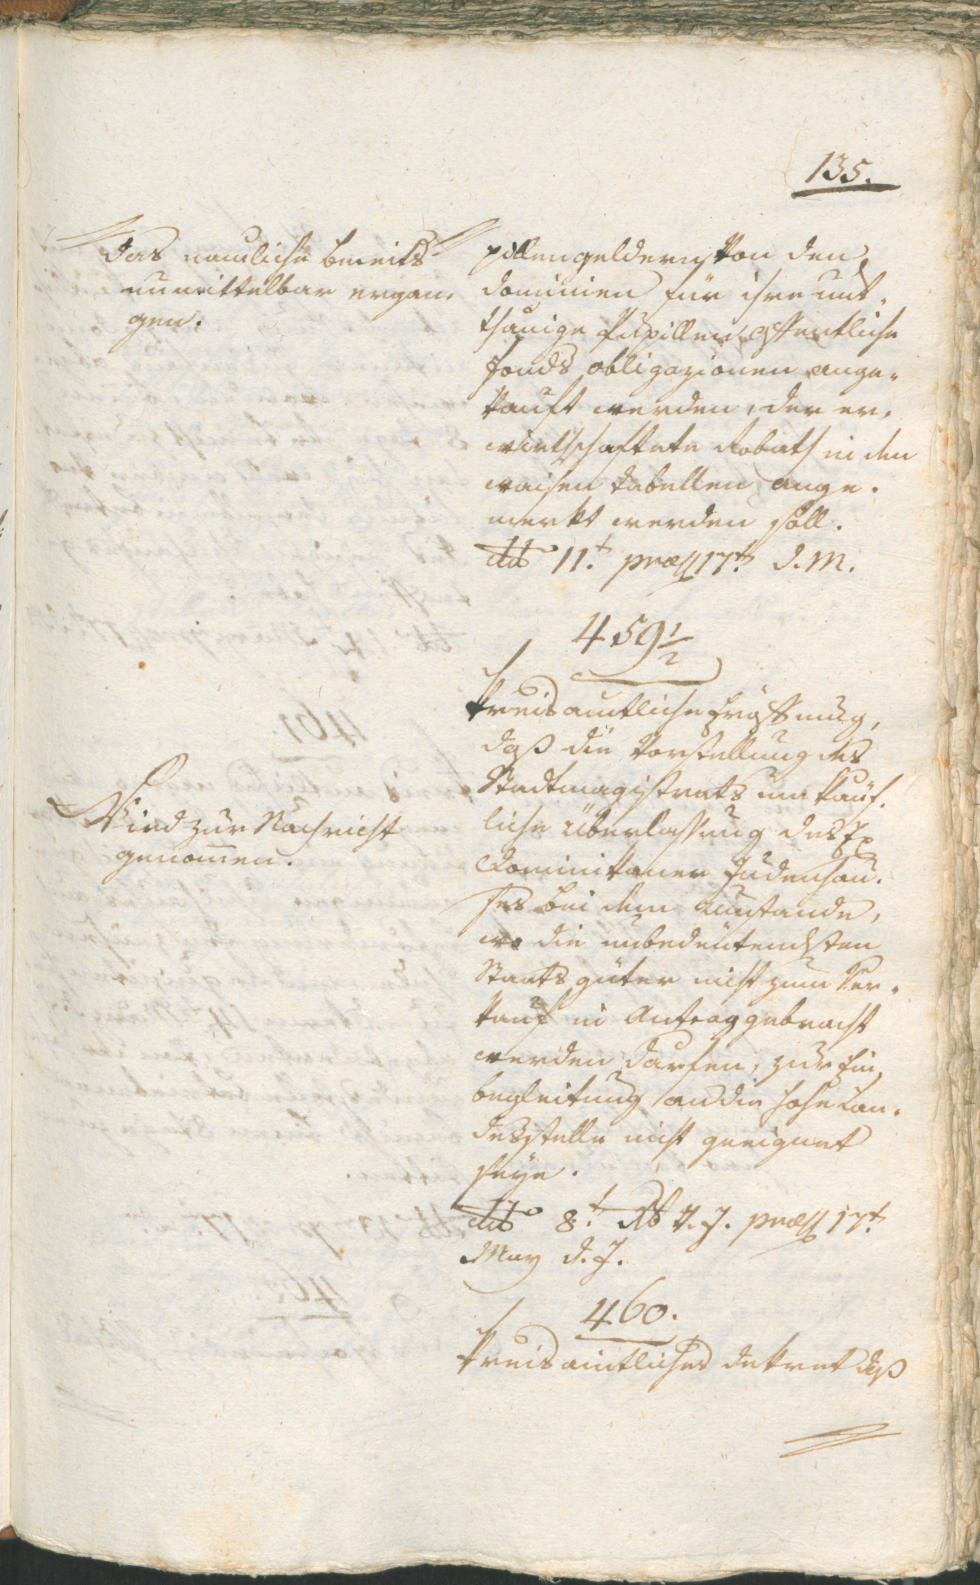 135.
Das nämliche bereits
unmittelbar ergan,
gen.
pillengeldern, Von den
Dominien für ihre unt,
thänige Pupillen öffentliche
Fonds obligazionen ange,
kauft werden, der er,
wirtschaftete Rabath in den
waisen Tabellen ange.
merkt werden soll.
ddto 11.t præs 17t d. M.
459 1/2
Kreisamtliche Eröffnung,
daß die Vorstellung des
Stadtmagistrats um käuf.
liche Überlassung des Ex
Dominikaner Judenhau.
ses bei dem Umstande,
wo die unbedeutendsten
Staats güter nicht zum Ver,
kauf in Antrag gebracht
werden darfen, zur Ein,
begleitung an die hohe Lan,
desstelle nicht geeignet
seye.
Wird zur Nachricht
genommen.
ddto 8.t v. J. præs 17t
May d. J.
460.
Kreisamtliches Dekret daß